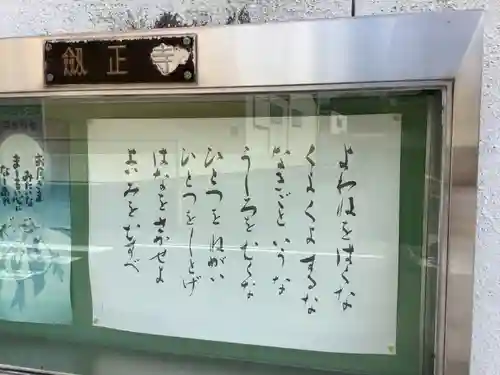 劔正寺
よわねをはくな
くよくよするな
なきごというな
うしろをむくな
ひとつをねがい
ひとつをしとげ
はなをさかせよ
よいみをむすべ